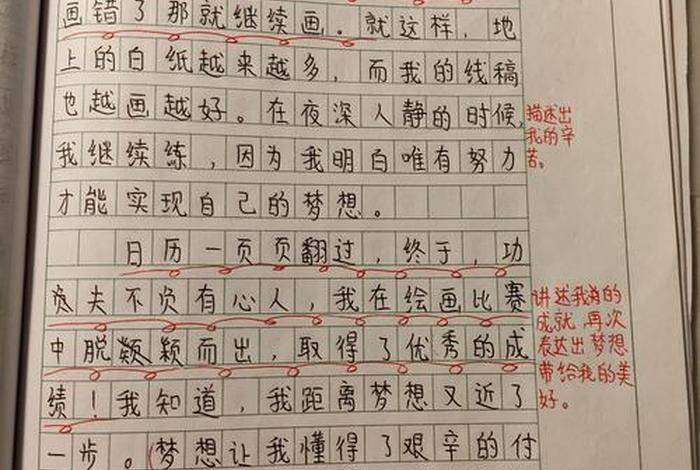 画错了那就继续画。就这样，地
上的白纸越来越多，而我的线稿
也越画越好。在夜深人静的时候，
我继续练，因为我明白唯有努力
才能实现自己的梦想。
日历一页页翻过，终于，功
夫不负有心人，我在绘画比赛
中脱颖而出，取得了优秀的成
绩！我知道，我距离梦想又近了
一步。梦想让我懂得了艰辛的付
描述出
我的辛
苦。
讲述我的
成就，再次
表达出梦想
带给我的美
好。